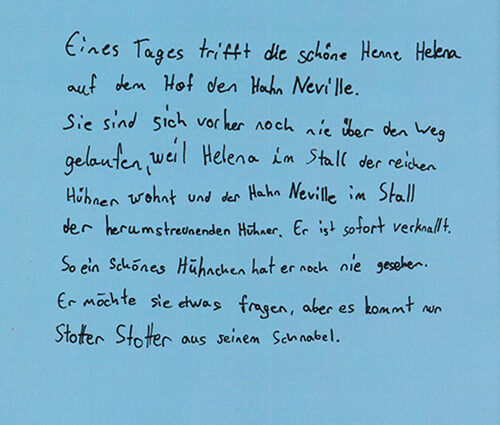 Eines Tages trifft die schöne Henne Helena
auf dem Hof den Hahn Neville.
Sie sind sich vorher noch nie über den Weg
gelaufen, weil Helena im Stall der reichen
Hühner wohnt und der Hahn Neville im Stall
der herumstreunenden Hühner. Er ist sofort verknallt.
So ein schönes Hühnchen hat er noch nie gesehen.
Er möchte sie etwas fragen, aber es kommt nur
Stotter Stotter aus seinem Schnabel.